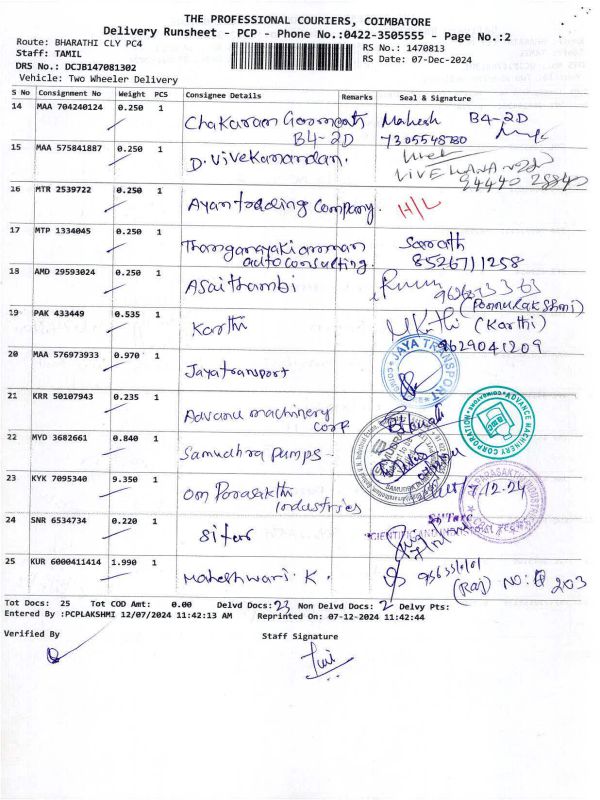 THE PROFESSIONAL COURIERS, COIMBATORE
Delivery Runsheet - PCP - Phone No.:0422-3505555 - Page No.:2
Route: BHARATHI CLY PC4
RS No.: 1470813
Staff: TAMIL
RS Date: 07-Dec-2024
DRS No.: DCJB147081302
Vehicle: Two Wheeler Delivery
S No Consignment No Weight PCS Consignee Details Remarks Seal & Signature
14 MAA 704240124 0.250 1 Chakaram B4-2D Mahesh B4-2D
7305548780
15 MAA 575841887 0.250 1 D. Vivekanandan.
16 MTR 2539722 0.250 1 Ayan Tradding Company. H/L
17 MTP 1334045 0.250 1 Thanganayakiamman auto consulting. Sarath
8526711258
18 AMD 29593024 0.250 1 Asaithambi
(Ponnulakshmi)
19 PAK 433449 0.535 1 Karthi (Karthi)
9629041209
20 MAA 576973933 0.970 1 Jayatransport
JAYA TRANSPORT
21 KRR 50107943 0.235 1 Advance machinery corp
ADVANCE MACHINERY CORPORATION
22 MYD 3682661 0.840 1 Samudhra Pumps.
23 KYK 7095340 9.350 1 Om Parasakthi Industries
7.12.24
24 SNR 6534734 0.220 1 Sitarc
25 KUR 6000411414 1.990 1 Maheshwari. K.
(Raj) NO: 203
Tot Docs: 25 Tot COD Amt: 0.00 Delvd Docs: 23 Non Delvd Docs: 2 Delvy Pts:
Entered By :PCPLAKSHMI 12/07/2024 11:42:13 AM Reprinted On: 07-12-2024 11:42:44
Verified By
Staff Signature